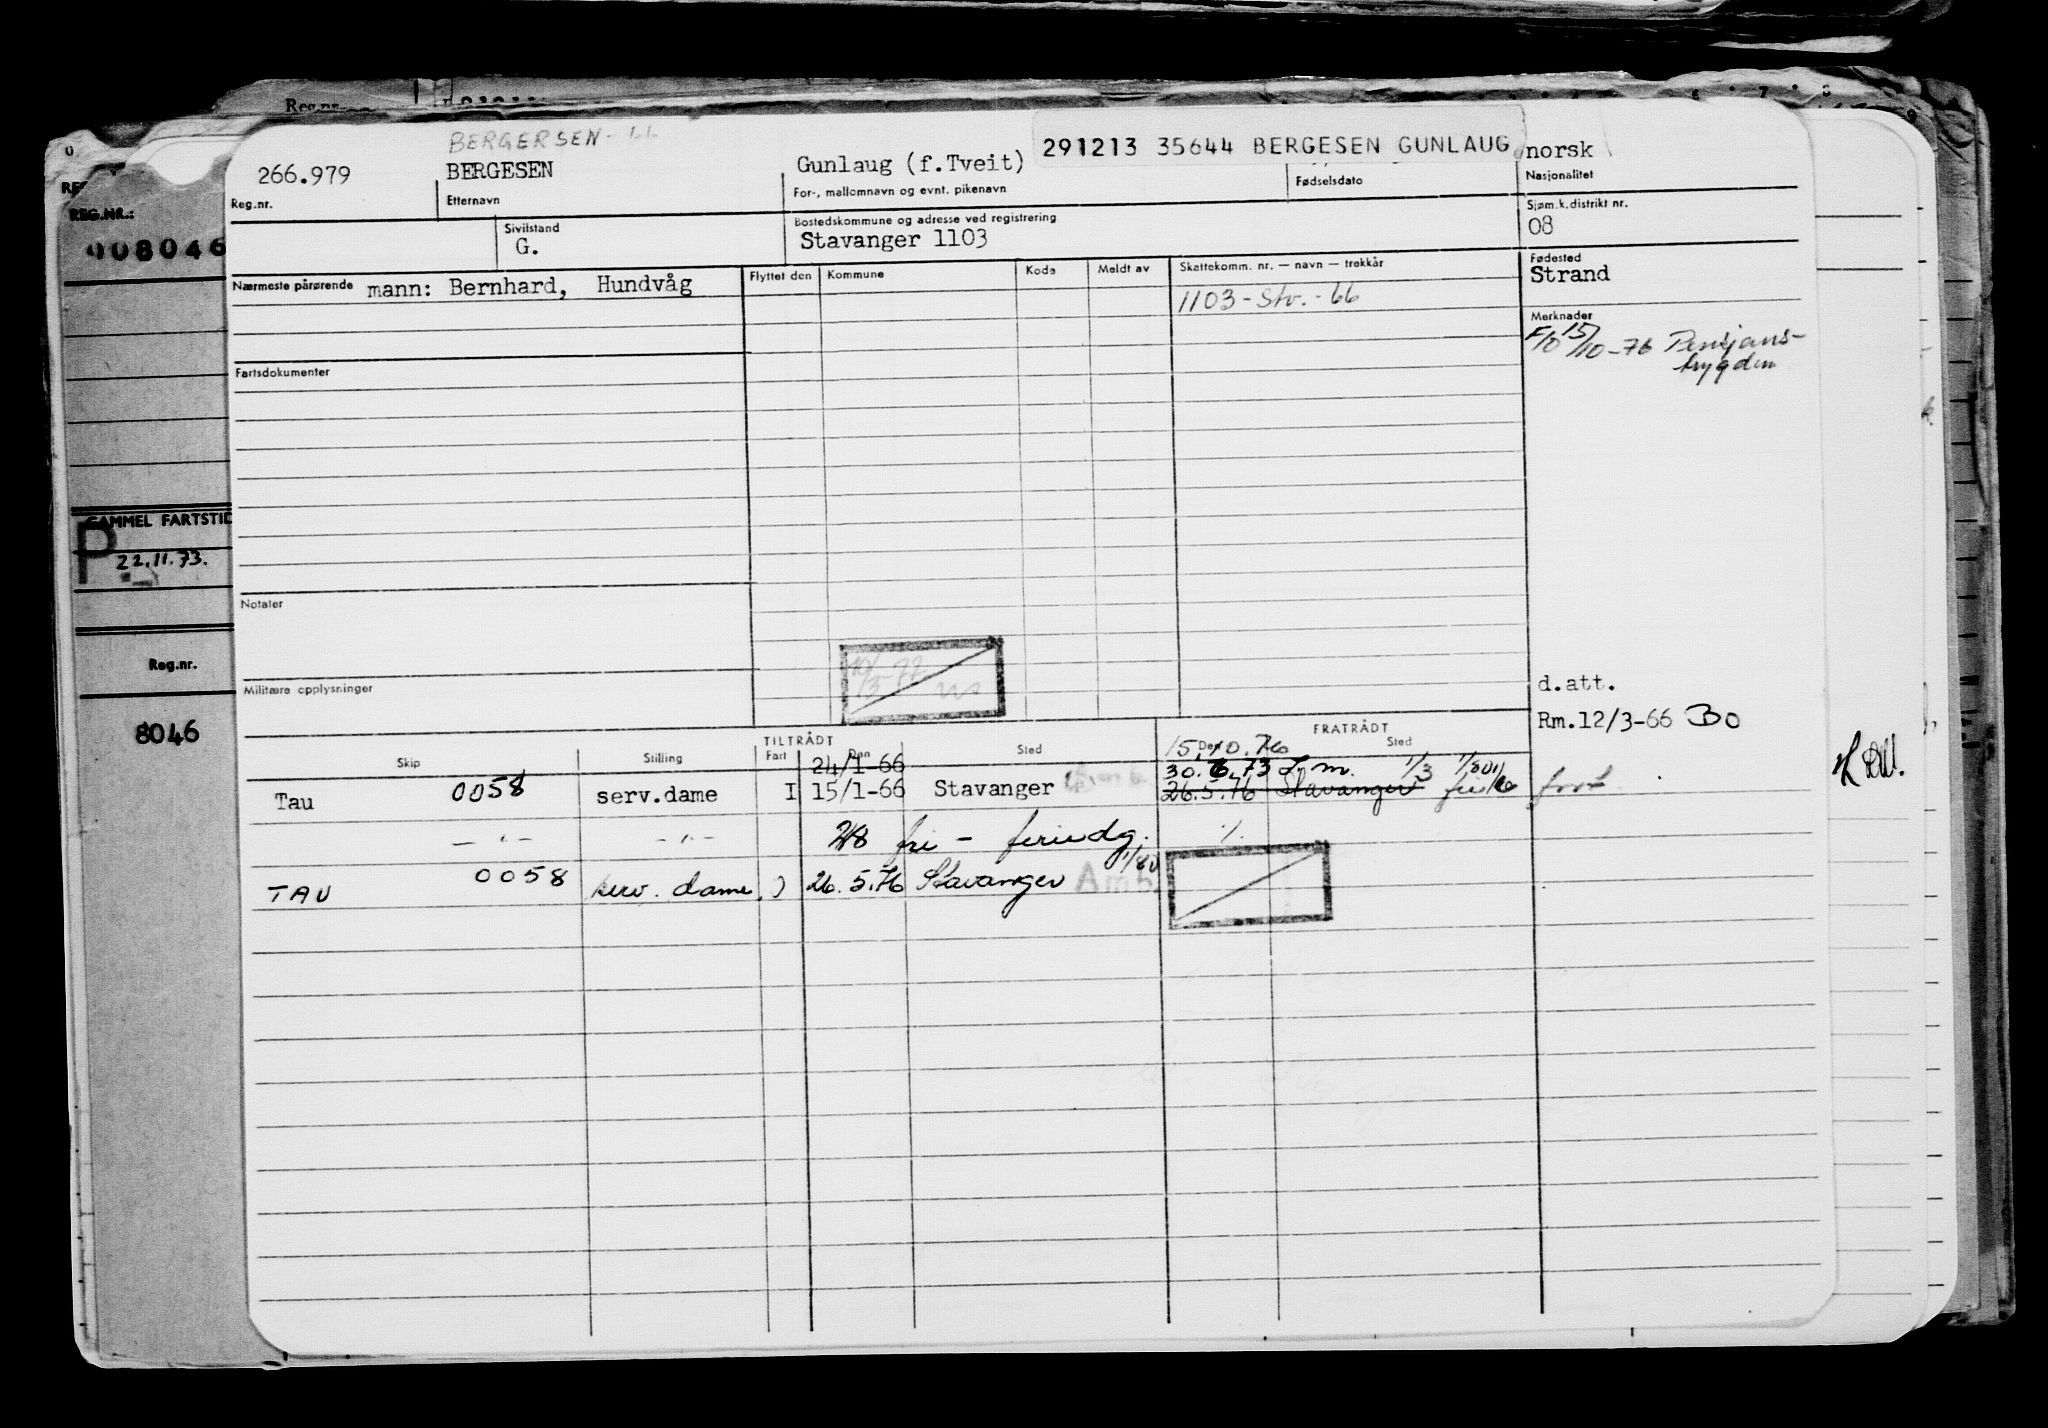 Reg.nr.
REG.NR.:
008046
GAMMEL FARTSTID
P
22.11.73.
Reg.nr.
8046
BERGERSEN-66
266.979 BERGESEN Gunlaug (f.Tveit) 291213 35644 BERGESEN GUNLAUG norsk
Reg.nr. Etternavn For-, mellomnavn og evnt. pikenavn Fødselsdato Nasjonalitet
Sivilstand Bostedskommune og adresse ved registrering Sjøm.k.distrikt nr.
G. Stavanger 1103 08
Nærmeste pårørende mann: Bernhard, Hundvåg Flyttet den Kommune Kode Meldt av Skattekomm. nr. — navn — trekkår Fødested
Strand
1103-Stv.-66
Merknader
F/0 15/10-76 Pensjons-
trygden
Fartsdokumenter
Notater
10/3-72
Militære opplysninger
d.att.
Rm.12/3-66 BO
TILTRÅDT FRATRÅDT
Skip Stilling Fart Den Sted Den Sted
15.10.76
24/1-66 30.6.73 L.m. 1/3 1/801
Tau 0058 serv.dame I 15/1-66 Stavanger 26.5.76 Stavanger
— " — — " — 28 fri - feriedg. ./.
TAU 0058 serv. dame ) 26.5.76 Stavanger 1/80 Amb.